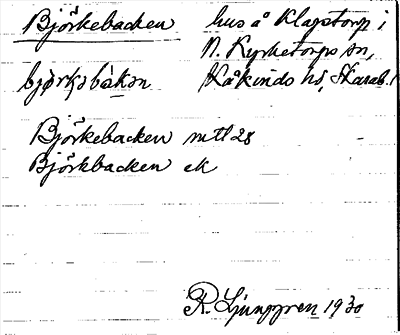 Björkebacken hus å Klagstorp i
N. Kyrketorps sn,
bjørkəbàkən Kåkinds hd, Skarab. l
Björkebacken mtl 28
Björkbacken ek
R. Ljunggren 1930